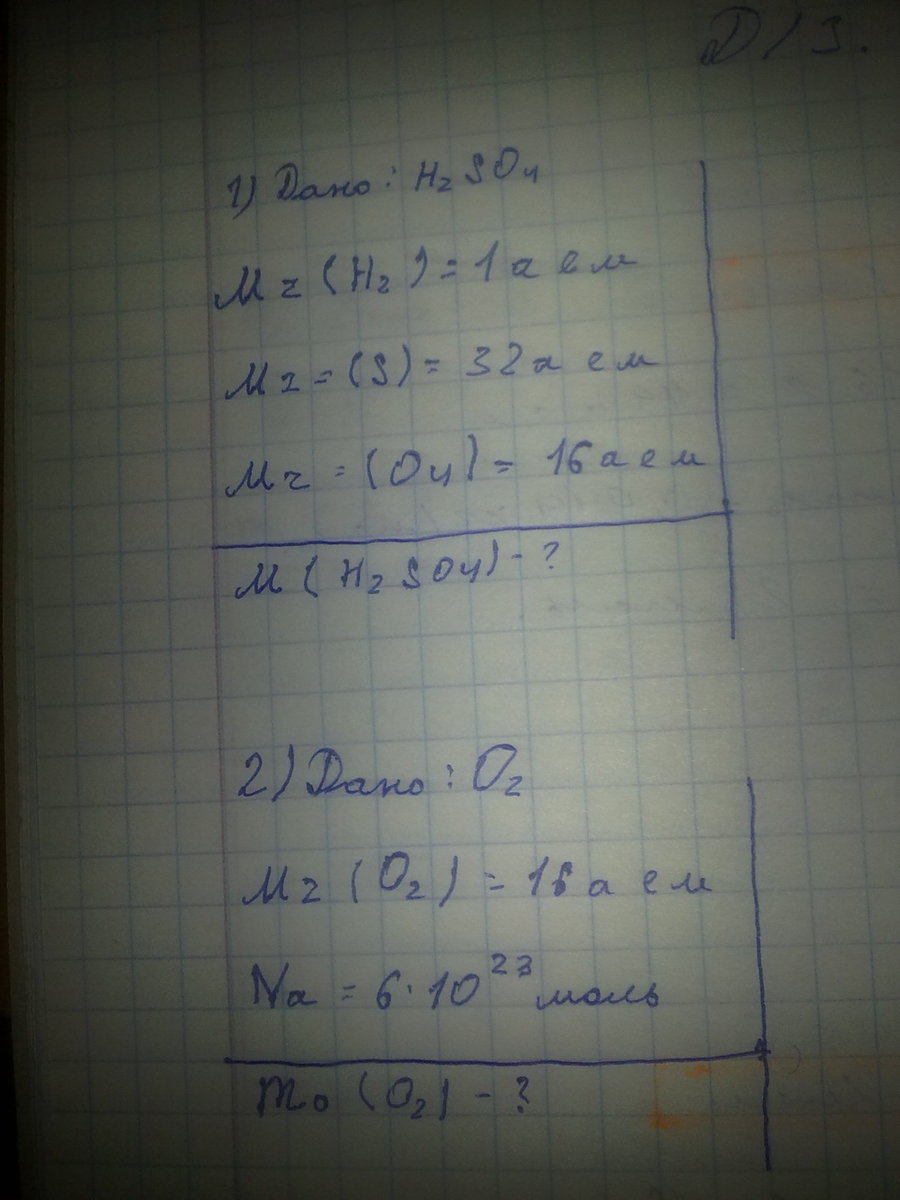 Д/З.
1) Дано: H₂SO₄
Mr (H₂) = 1 а е м
Mr = (S) = 32 а е м
Mr = (O₄) = 16 а е м
M (H₂SO₄) - ?
2) Дано: O₂
Mr (O₂) = 16 а е м
Na = 6·10²³ моль
m₀ (O₂) - ?